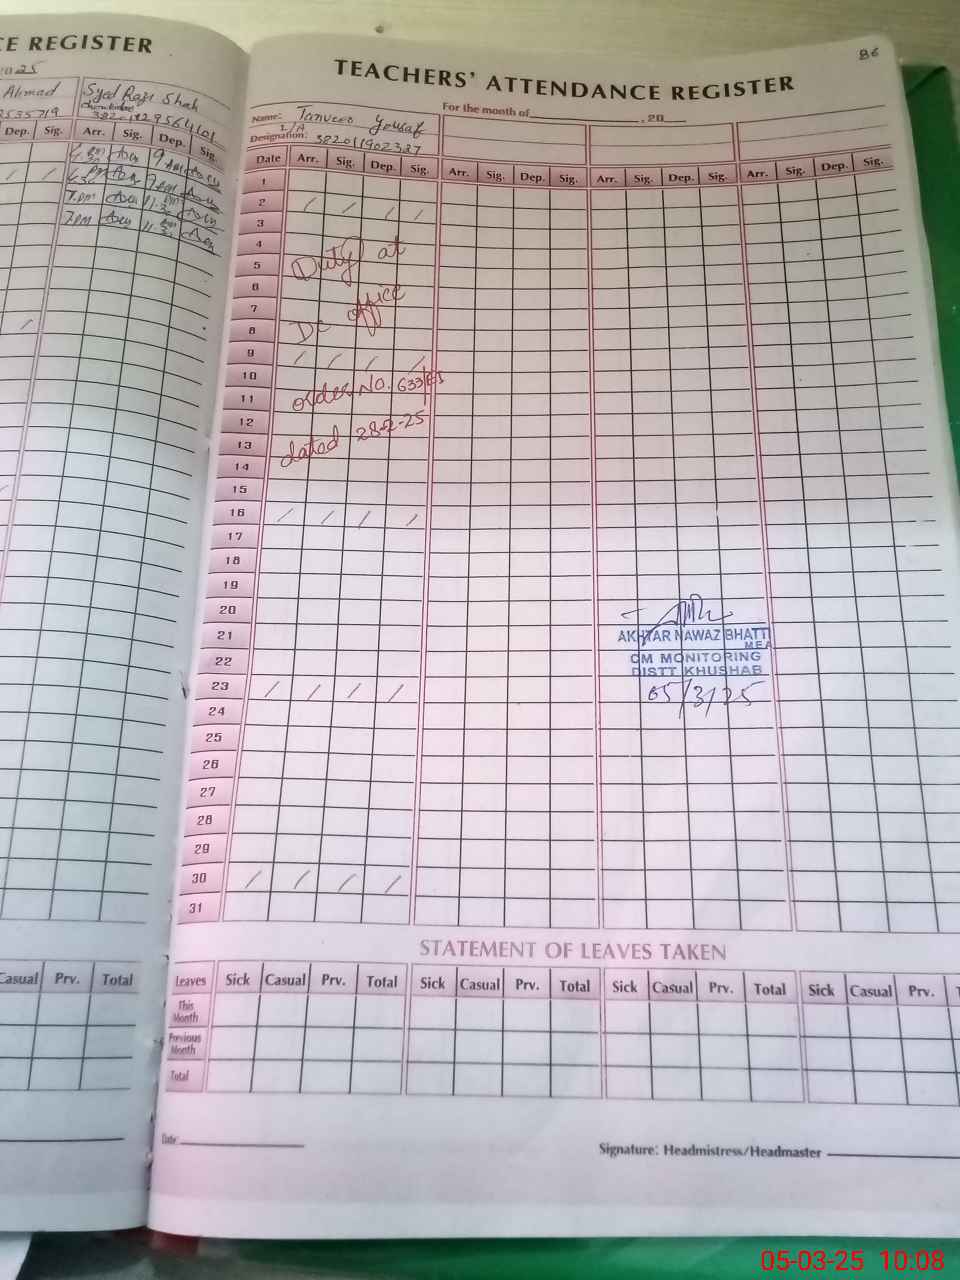 CE REGISTER
2025
Ahmad
Syed Razi Shah
Chowkidar
Dep. Sig. Arr. Sig. Dep. Sig.
7 PM
7 PM
Casual Prv. Total
86
TEACHERS' ATTENDANCE REGISTER
For the month of , 20
Name: Tanveer Yousaf
L/A
Designation: 3820119023
Date Arr. Sig. Dep. Sig. Arr. Sig. Dep. Sig. Arr. Sig. Dep. Sig. Arr. Sig. Dep. Sig.
1
2 / / / /
3
4
5 Duty at
6
7
8 Dc office
9 / / / /
10
11 order No. 633/EI
12
13 dated 28-2-25
14
15
16 / / / /
17
18
19
20
21
22
23 / / / /
24
25
26
27
28
29
30 / / / /
31
AKHTAR NAWAZ BHATTI
MEA
CM MONITORING
DISTT KHUSHAB
05/3/25
STATEMENT OF LEAVES TAKEN
Leaves Sick Casual Prv. Total Sick Casual Prv. Total Sick Casual Prv. Total Sick Casual Prv. T
This
Month
Previous
Month
Total
Date:
Signature: Headmistress/Headmaster
05-03-25 10:08